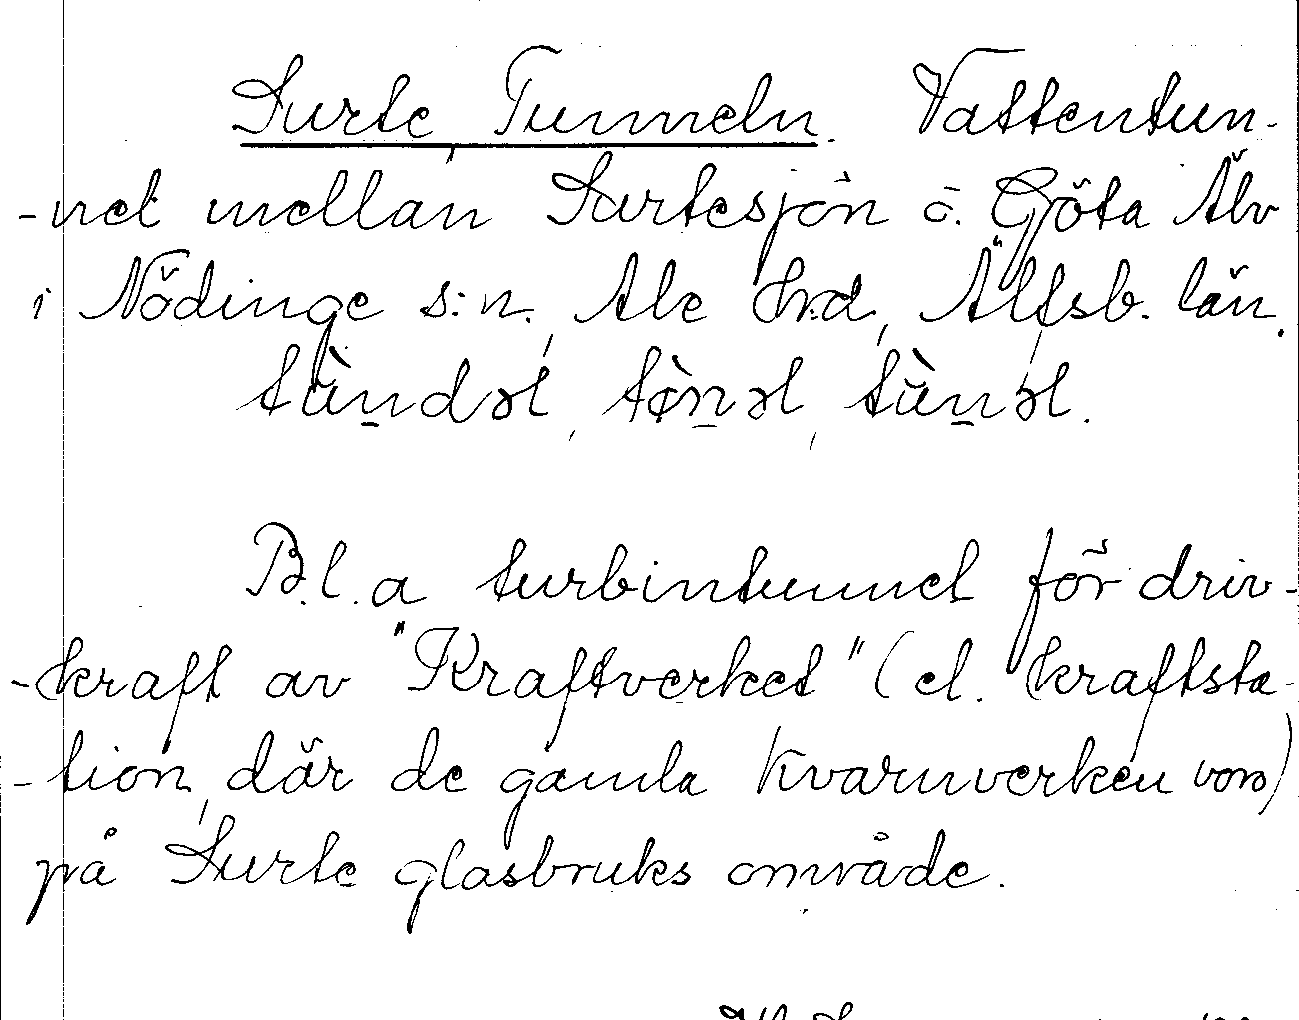 Surte Tunneln. Vattentun-
-nel mellan Surtesjön o. Göta Älv
i Nödinge s:n., Ale Hrd, Älfsb. län.
tùndəl, tònəl, tùnəl.
Bl.a turbintunnel för driv-
-kraft av "Kraftverket" (el. kraftsta-
-tion, där de gamla kvarnverken voro)
på Surte glasbruks område.